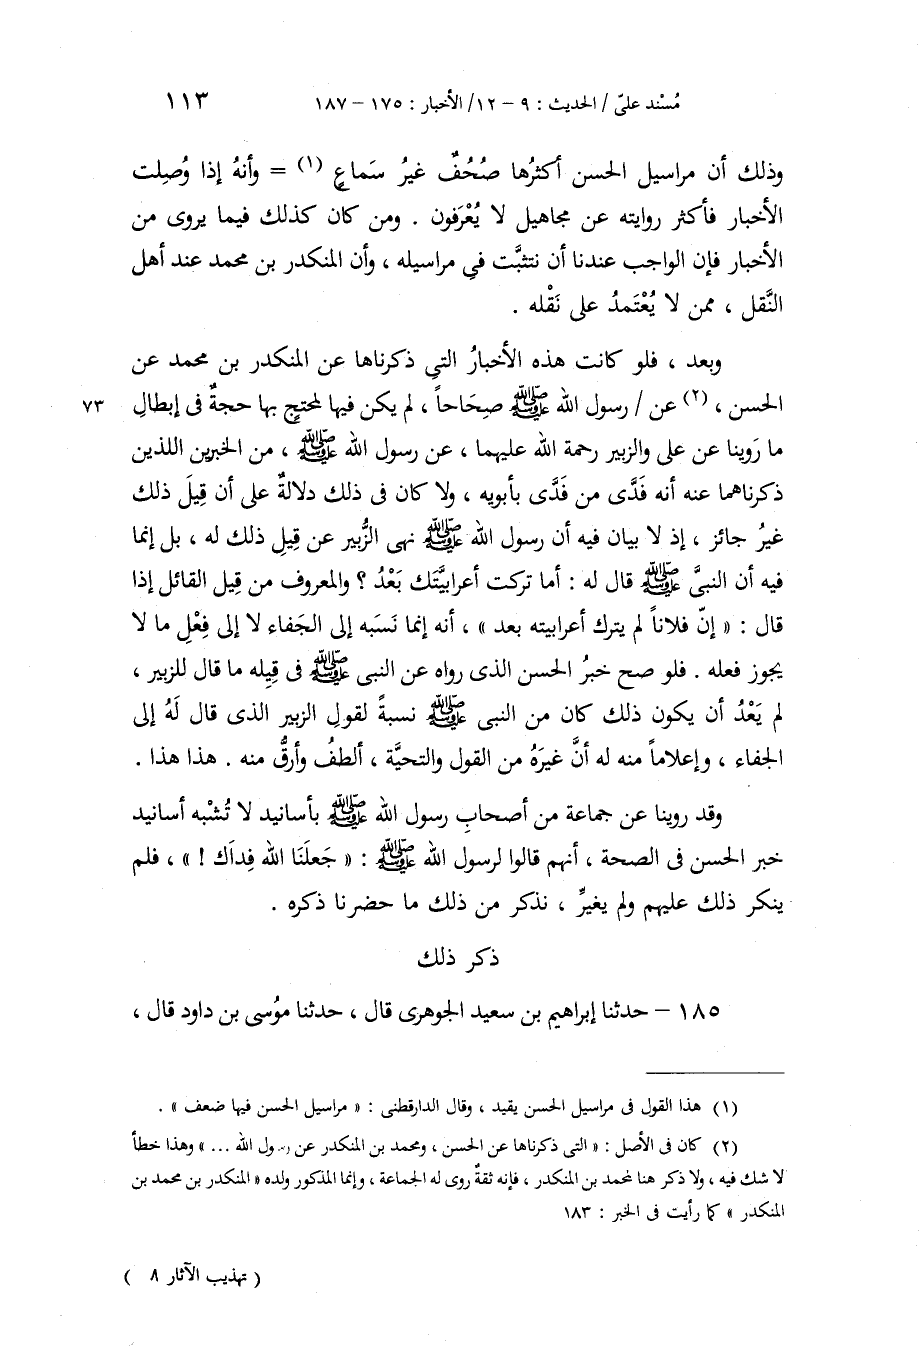 مُسْند علىّ / الحديث : ٩ – ١٢/ الأخبار : ١٧٥ – ١٨٧ ١١٣
وذلك أن مراسيل الحسن أكثرُها صُحُفٌ غيرُ سَماعٍ (١) = وأنهُ إذا وُصِلت
الأخبار فأكثر روايته عن مجاهيل لا يُعْرَفون . ومن كان كذلك فيما يروى من
الأخبار فإن الواجب عندنا أن نتثبَّت في مراسيله ، وأن المنكدر بن محمد عند أهل
النَّقل ، ممن لا يُعْتَمدُ على نَقْله .
وبعد ، فلو كانت هذه الأخبارُ التي ذكرناها عن المنكدر بن محمد عن
الحسن ، (٢) عن / رسول الله ﷺ صِحَاحاً ، لم يكن فيها لمحتجٍ بها حجةٌ فى إبطالِ ٧٣
ما رَوينا عن على والزبير رحمة الله عليهما ، عن رسول الله ﷺ ، من الخبرين اللذين
ذكرناهما عنه أنه فَدَّى من فَدَّى بأبويه ، ولا كان فى ذلك دلالةٌ على أن قِيلَ ذلك
غيرُ جائز ، إذ لا بيان فيه أن رسول الله ﷺ نهى الزُّبير عن قِيلِ ذلك له ، بل إنما
فيه أن النبىَّ ﷺ قال له : أما تركت أعرابيَّتَك بَعْدُ ؟ والمعروف من قِيل القائل إذا
قال : « إنّ فلاناً لم يترك أعرابيته بعد » ، أنه إنما نَسَبَه إلى الجَفاء لا إلى فِعْلِ ما لا
يجوز فعله . فلو صح خبرُ الحسن الذى رواه عن النبى ﷺ فى قِيله ما قال للزبير ،
لم يَعْدُ أن يكون ذلك كان من النبى ﷺ نسبةً لقولِ الزبير الذى قال لَهُ إلى
الجفاء ، وإعلاماً منه له أنَّ غيرَهُ من القول والتحيَّة ، ألطفُ وأرقُّ منه . هذا هذا .
وقد روينا عن جماعة من أصحابِ رسول الله ﷺ بأسانيد لا تُشْبه أسانيد
خبر الحسن فى الصحة ، أنهم قالوا لرسول الله ﷺ : « جَعلَنَا الله فِداَك ! » ، فلم
ينكر ذلك عليهم ولم يغيرِّ ، نذكر من ذلك ما حضرنا ذكره .
ذكر ذلك
١٨٥ – حدثنا إبراهيم بن سعيد الجوهرى قال ، حدثنا مُوسى بن داود قال ،
(١) هذا القول فى مراسيل الحسن يقيد ، وقال الدارقطنى : « مراسيل الحسن فيها ضعف » .
(٢) كان فى الأصل : « التى ذكرناها عن الحسن ، ومحمد بن المنكدر عن رسول الله ... » وهذا خطأ
لا شك فيه ، ولا ذكر هنا لمحمد بن المنكدر ، فإنه ثقةٌ روى له الجماعة ، وإنما المذكور ولده « المنكدر بن محمد بن
المنكدر » كما رأيت فى الخبر : ١٨٣
( تهذيب الآثار ٨ )